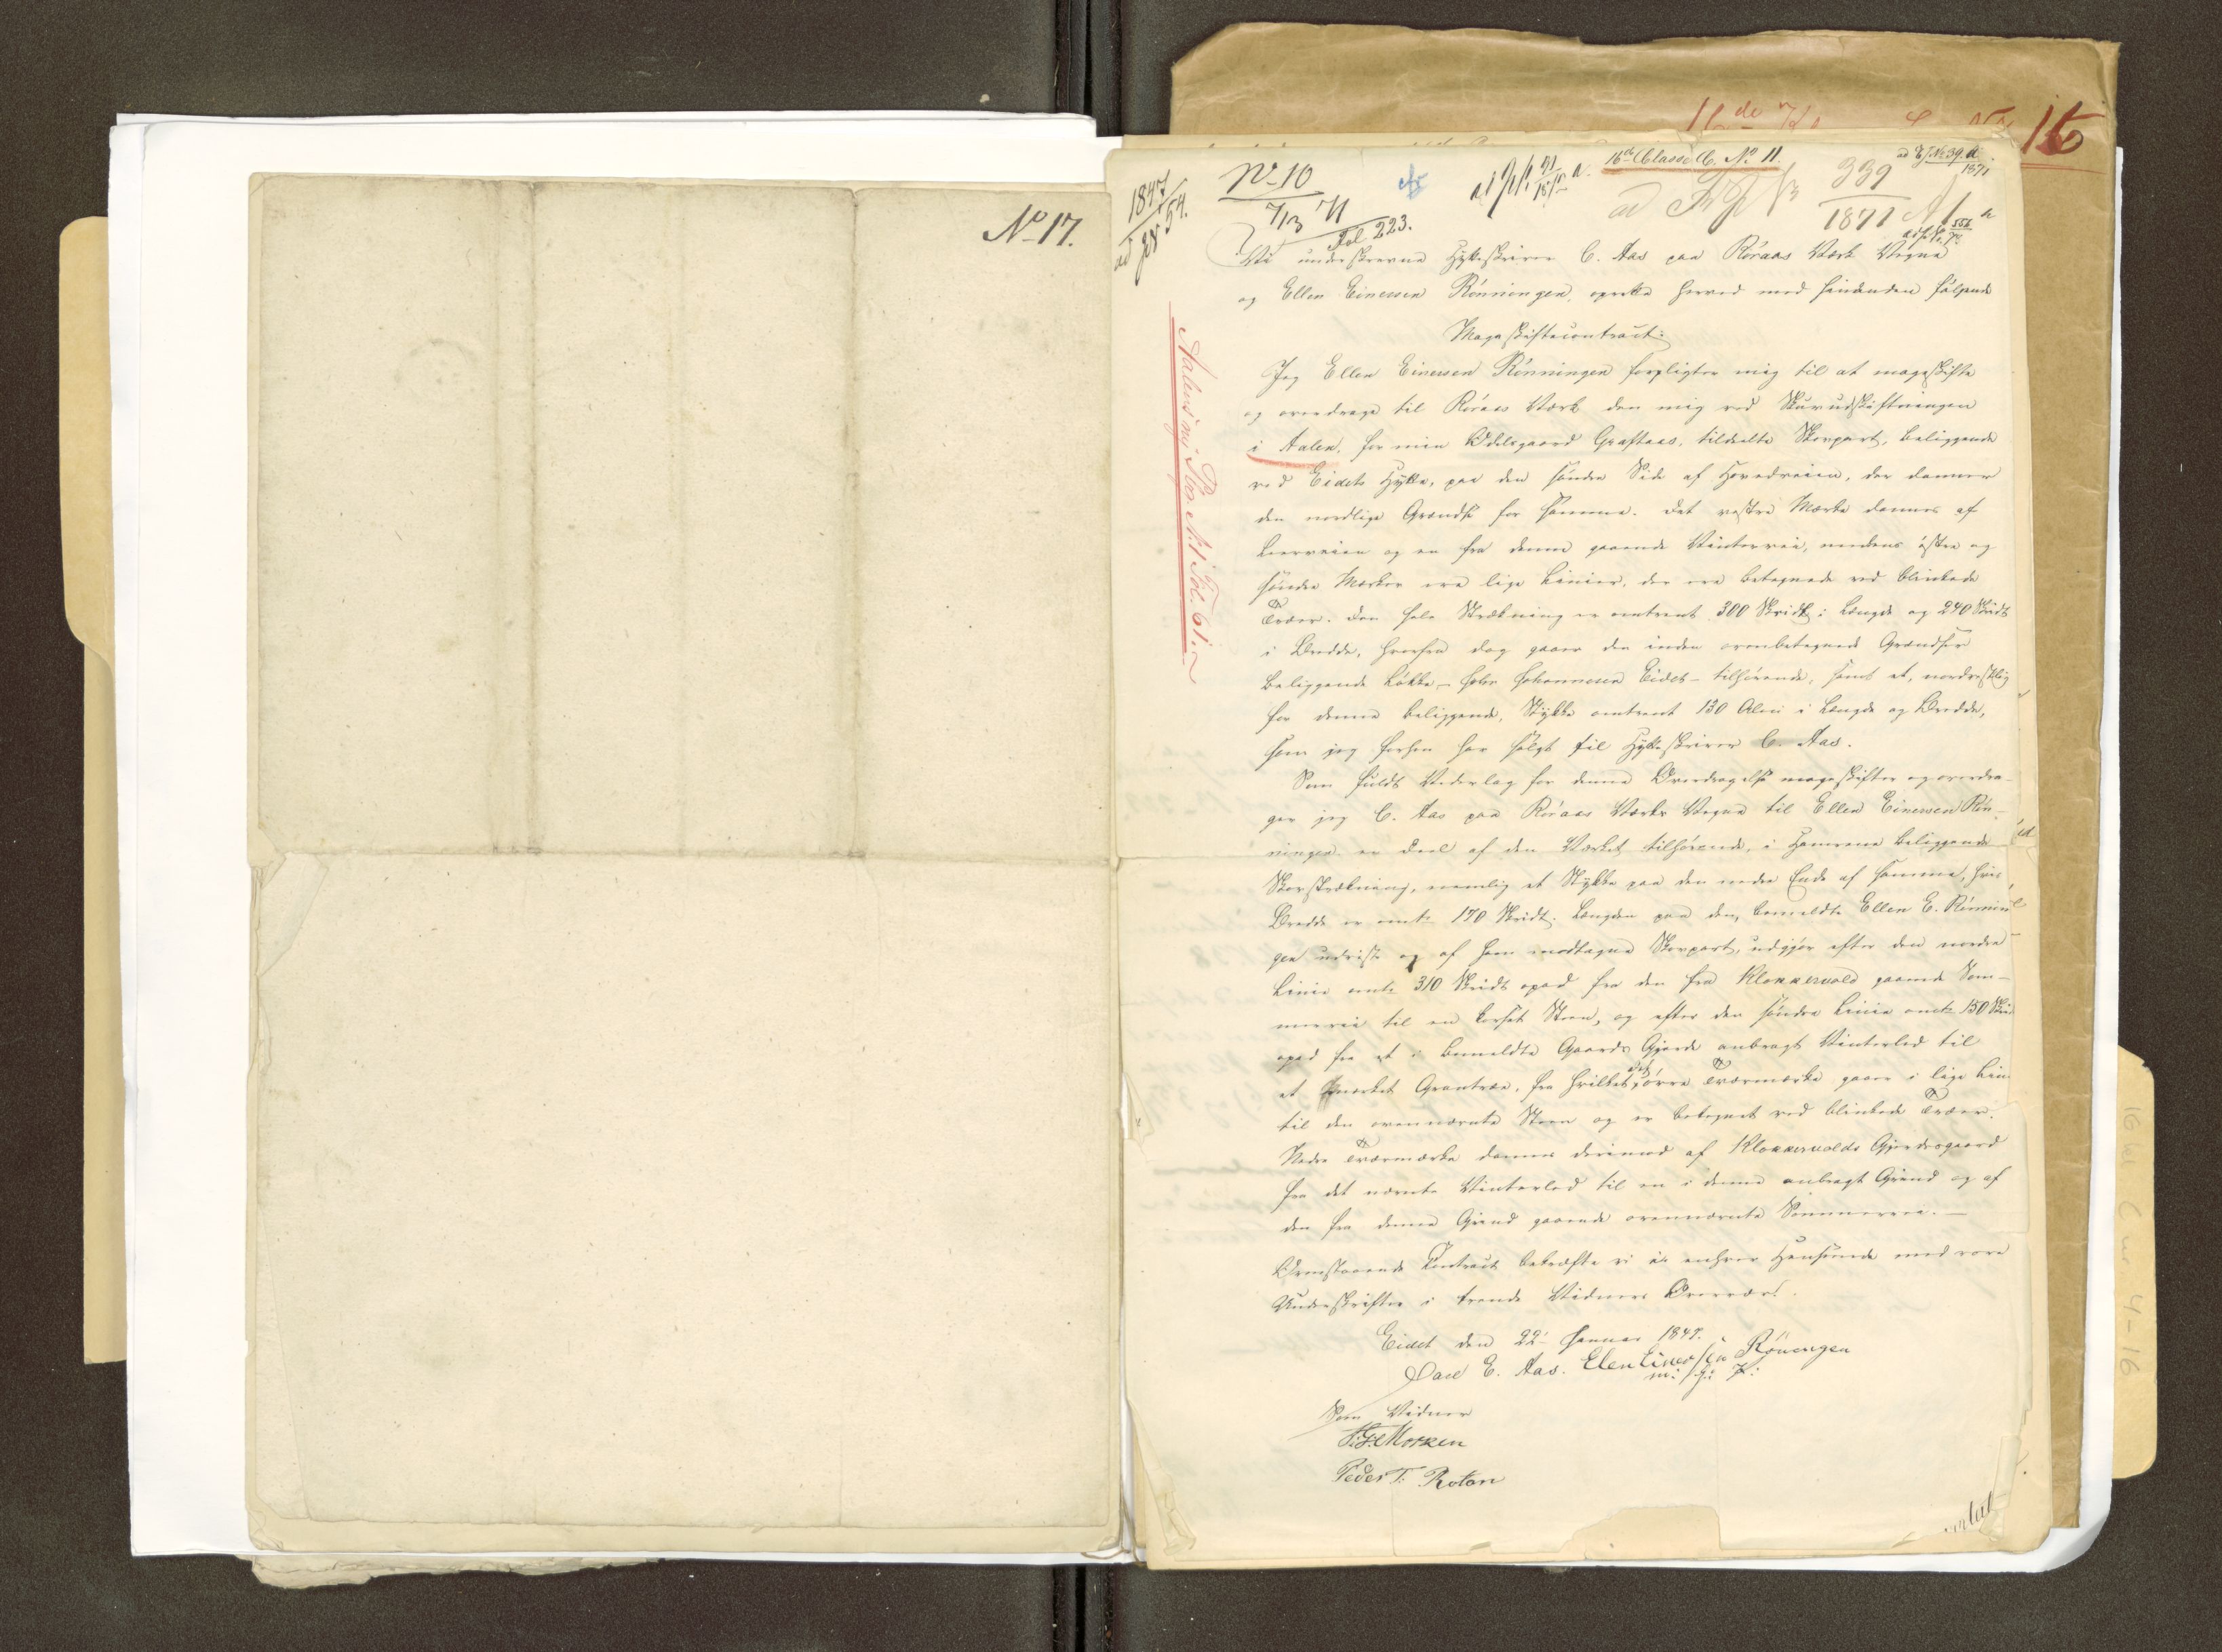 No 17.
16
16de Classe C. No 11.
ad Ej No 39. a
1871
No 10
7/3 71
Fol 223.
1847
ad 54.
339
1871
Vi underskrevne Hytteskriver C. Aas paa Røraas Værks Vegne
og Ellen Einersen Rønningen, oprette herved med hinanden følgende
Mageskiftecontract:
Jeg Ellen Einersen Rønningen forpligter mig til at mageskifte
og overdrage til Røraas Værk den mig ved Skovudskiftningen
i Aalen, for min Odelsgaard Graftaas, tildeelte Skovpart, beliggende
ved Eidets Hytte, paa den søndre Side af Hovedveien, der danner
den nordlige Grændse for samme. Det vestre Mærke dannes af
Leerveien og en fra denne gaaende Vintervei, medens østre og
søndre Mærker ere lige Linier, der ere betegnede ved blinkede
Træer. Den hele Strækning er omtrent 300 Skridt i Længde og 240 Skridt
i Bredde, hvorfra dog gaaer den inden ovenbetegnede Grændser
beliggende Løkke – John Johannesen Eidet – tilhørende, samt et, nordvestlig
for denne beliggende, Stykke omtrent 130 Alen i Længde og Bredde,
som jeg forhen har solgt til Hytteskriver C. Aas.
Som fuldt Vederlag for denne Overdragelse mageskifter og overdra-
ger jeg C. Aas paa Røraas Værks Vegne til Ellen Einersen Røn-
ningen en Deel af den Værket tilhørende, i Hamrene beliggende
Skovstrækning, nemlig et Stykke paa den nedre Ende af samme, hvis
Bredde er omtr 170 Skridt. Længden paa den, bemeldte Ellen E. Rønnin-
gen udviste og af ham modtagne Skovpart, udgjør efter den nordre
Linie omtr 310 Skridt opad fra den fra Klokkervold gaaende Som-
mervei til en korset Steen, og efter den søndre Linie omtr 150 Skridt
opad fra et i bemeldte Gaards Gjerde anbragt Vinterled til
et mærket Grantræ, fra hvilket det øvre Tværmærke gaaer i lige Linie
til den ovennævnte Steen og er betegnet ved blinkede Træer.
Nedre Tværmærke dannes derimod af Klokkervolds Gjerdesgaard
fra det nævnte Vinterled til en i denne anbragt Grind og af
den fra denne Grind gaaende ovennævnte Sommervei. —
Ovenstaaende Contract bekræfte vi i enhver Henseende med vore
Underskrifter i tvende Vidners Overvær.
Eidet den 22 Januar 1847.
Carl E. Aas. Elen Einersen Rønengen
m: f: P:
Som Vidner
Peder T. Roton
Aalens nj. Pan. N: 1 Fol. 61.
16 kl C nr 4-16